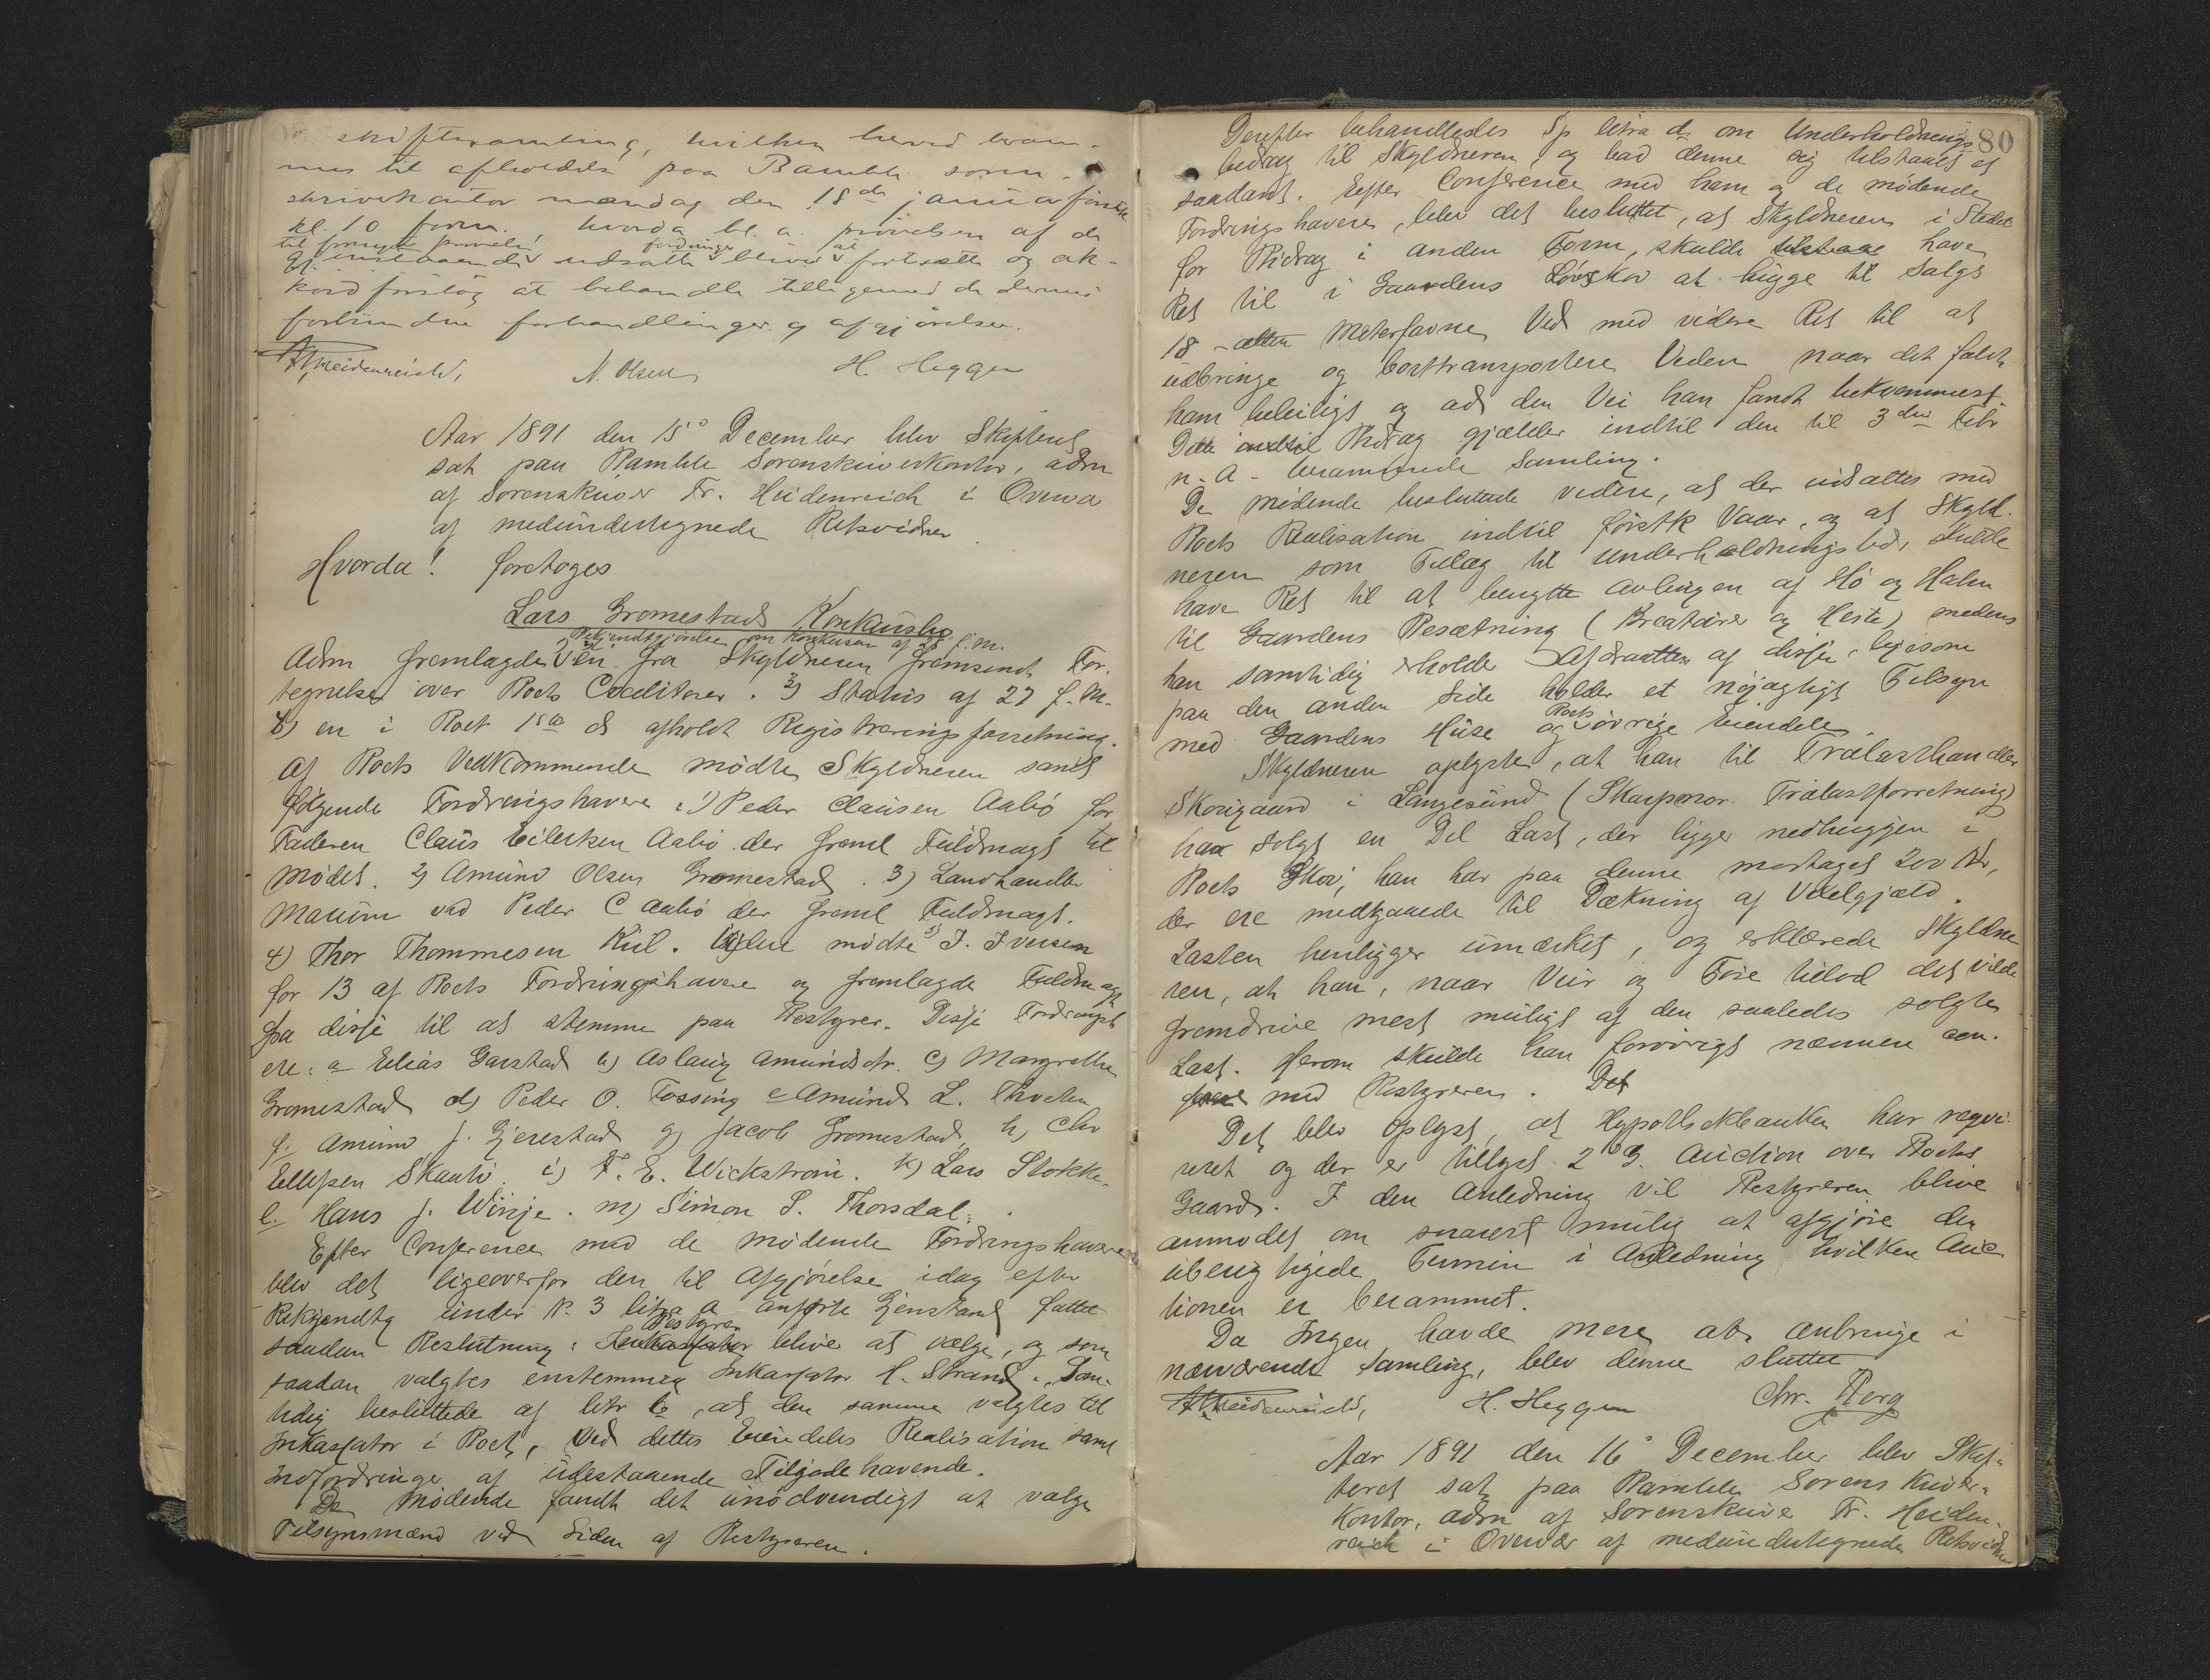 skiftesamling, hvilken herved beram-
mes til afholdelse paa Bamble soren-
skriverkontor mandag den 18de januar førstk
kl. 10 form., hvorda bl. a. prøvelsen af de
til fornyet prøvelse fordringer at
gjenstaaende udsatte bliver fortsætte og ak-
kordforslag at behandle tilligemed de dermed
forbundne forhandlinger og afgjørelser.
Fr Heidenreich, N. Olsen H. Heggen
Aar 1891 den 15° December blev Skifteret
sat paa Bamble Sorenskriverkontor, adm
af Sorenskriver Fr. Heidenreich i Overvær
af medundertegnede Retsvidner
Hvorda! foretoges
Lars Gromestads Konkursbo
1) Bekjendtgjørelse om Konkursen af 28 f. m.
Adm fremlagde 2) en fra Skyldneren fremsendt For-
tegnelse over Boets Creditorer. 3) Status af 27 f. M.
4) en i Boet 1ste ds afholdt Registreringsforretning.
Af Boets Vedkommende mødte Skyldneren samt
følgende Fordringshavere: 1) Peder Clausen Aabø for
Faderen Claus Eilertsen Aabø der freml Fuldmagt til
Mødet. 2) Amund Olsen Gromestad. 3) Landhandler
Mauum ved Peder C Aabø der freml Fuldmagt.
4) Thor Thommesen Kiil. Videre mødte 5) J. Iversen
for 13 af Boets Fordringshavere og fremlagde Fuldmagt
fra disse til at stemme paa Bestyrer. Disse Fordringsh
ere: a Elias Garstad b) Aslaug Amundsdtr. c) Margrethe
Gromestad d) Peder O. Tossing e Amund L. Tveten
f. Amund J. Gjerestad g) Jacob Gromestad, h) Chr
Ellefsen Skaabø i) F. E. Wickstrøm. k) Lars Stokke.
l. Hans J. Winje. m) Simon S. Thorsdal.
Efter Conference med de mødende Fordringshavere
blev det ligeoverfor den til Afgjørelse idag efter
Bekjendtg under N. 3 litra a anførte Gjenstand fattet
Bestyrer
saadan Beslutning: Inkassator bliver at vælge, og som
saadan valgtes enstemmig Inkassator H. Strand. Sam-
tidig besluttede af litr b, at den samme valgtes til
Inkassator i Boet, ved dettes Eiendeles Realisation samt
Indfordringer af udestaaende Tilgodehavende.
De Mødende fandt det unødvendigt at valge
Tilsynsmænd ved Siden af Bestyreren.
80
Derefter behandledes Sp litra d. om Underholdnings
bidrag til Skyldneren, og bad denne sig tilstaaet et
saadant. Efter Conference med ham og de mødende
Fordringshavere, blev det besluttet, at Skyldneren i Stedet
for Bidrag i anden Form, skulde tilstaae have
Ret til i Gaardens Løvskov at hugge til Salgs
18 - atten Meterfavne Ved med videre Ret til at
udbringe og borttransportere Veden naar det faldt
ham beleiligt og ad den Vei han fandt bekvemmest.
Dette indtil Bidrag gjælder indtil den til 3die Febr
n. A. berammede Samling.
De Mødende besluttede videre, at der udsættes med
Boets Realisation indtil førstk Vaar, og at Skyld-
neren som Tillæg til Underholdningsbid. skulde
have Ret til at benytte Avlingen af Hø og Halm
til Gaardens Besætning (Kreaturer og Heste) medens
han samtidig erholder Afdraatten af disse, ligesom
paa den anden Side holder et nøjagtigt Tilsyn
Boets
med Gaardens Huse og øvrige Eiendele.
Skyldneren oplyste, at han til Trælasthandler
Skougaard i Langesund (Skarpnor Trælastforretning)
har solgt en Del Last, der ligger nedhuggen i
Boets Skov; han har paa denne mortaget 200 Kr,
der ere medgaaede til Dækning af Vexelgjæld.
Lasten henligger umærket, og erklærede Skyldne
ren, at han, naar Veir og Føre tillod det vilde
fremdrive mest muligt af den saaledes solgte
Last. Herom skulde han forøvrigt nærmere con-
ferere med Bestyreren. Det
Det blev oplyst, at Hypothekbanken har reqvi-
reret og der er tillyst 2 G. Auction over Boets
Gaard. I den Anledning vil Bestyreren blive
anmodet om snarest mulig at afgjøre den
uberigtigede Termin i Anledning hvilken Auc
tionen er berammet.
Da Ingen havde mere at anbringe i
nærværende Samling, blev denne sluttet
Fr Heidenreich, H. Heggen Chr. Berg
Aar 1891 den 16° December blev Skif-
teret sat paa Bamble Sorenskriver-
kontor, adm af Sorenskriver Fr. Heiden-
reich i Overvær af medundertegnede Retsvidner